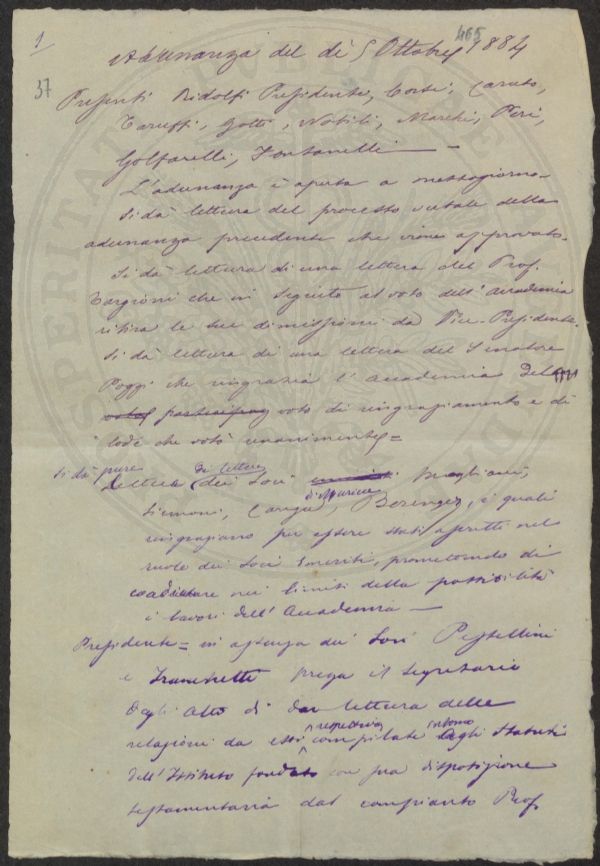 1
465
37
Adunanza del dì 5 Ottobre 1884
Presenti Ridolfi Presidente, Corsi, Caruso,
Taruffi, Gotti, Nobili, Marchi, Peri,
Golfarelli, Fontanelli —
L'adunanza è aperta a mezzogiorno.
Si dà lettura del processo verbale della
adunanza precedente che viene approvato.
Si dà lettura di una lettera del Prof.
Targioni che in seguito al voto dell'Accademia
ritira le sue dimissioni da Vice-Presidente.
Si dà lettura di una lettera del Senatore
Poggi che ringrazia l'Accademia del
voto partecipa voto di ringraziamento e di
lode che votò unanimente =
Si dà pure lettura di lettere dei Soci Magliani,
Siemoni, Carega di Muricce, Berenger, i quali
ringraziano per essere stati ascritti nel
ruolo dei Soci Emeriti, promettendo di
coadiuvare nei limiti della possibilità
i lavori dell'Accademia —
Presidente = in assenza dei Soci Pestellini
e Franchetti prega il Segretario
degli Atti di dar lettura delle
relazioni da essi respettiva compilate intorno agli Statuti
dell'Istituto fondato con sua disposizione
testamentaria dal compianto Prof.